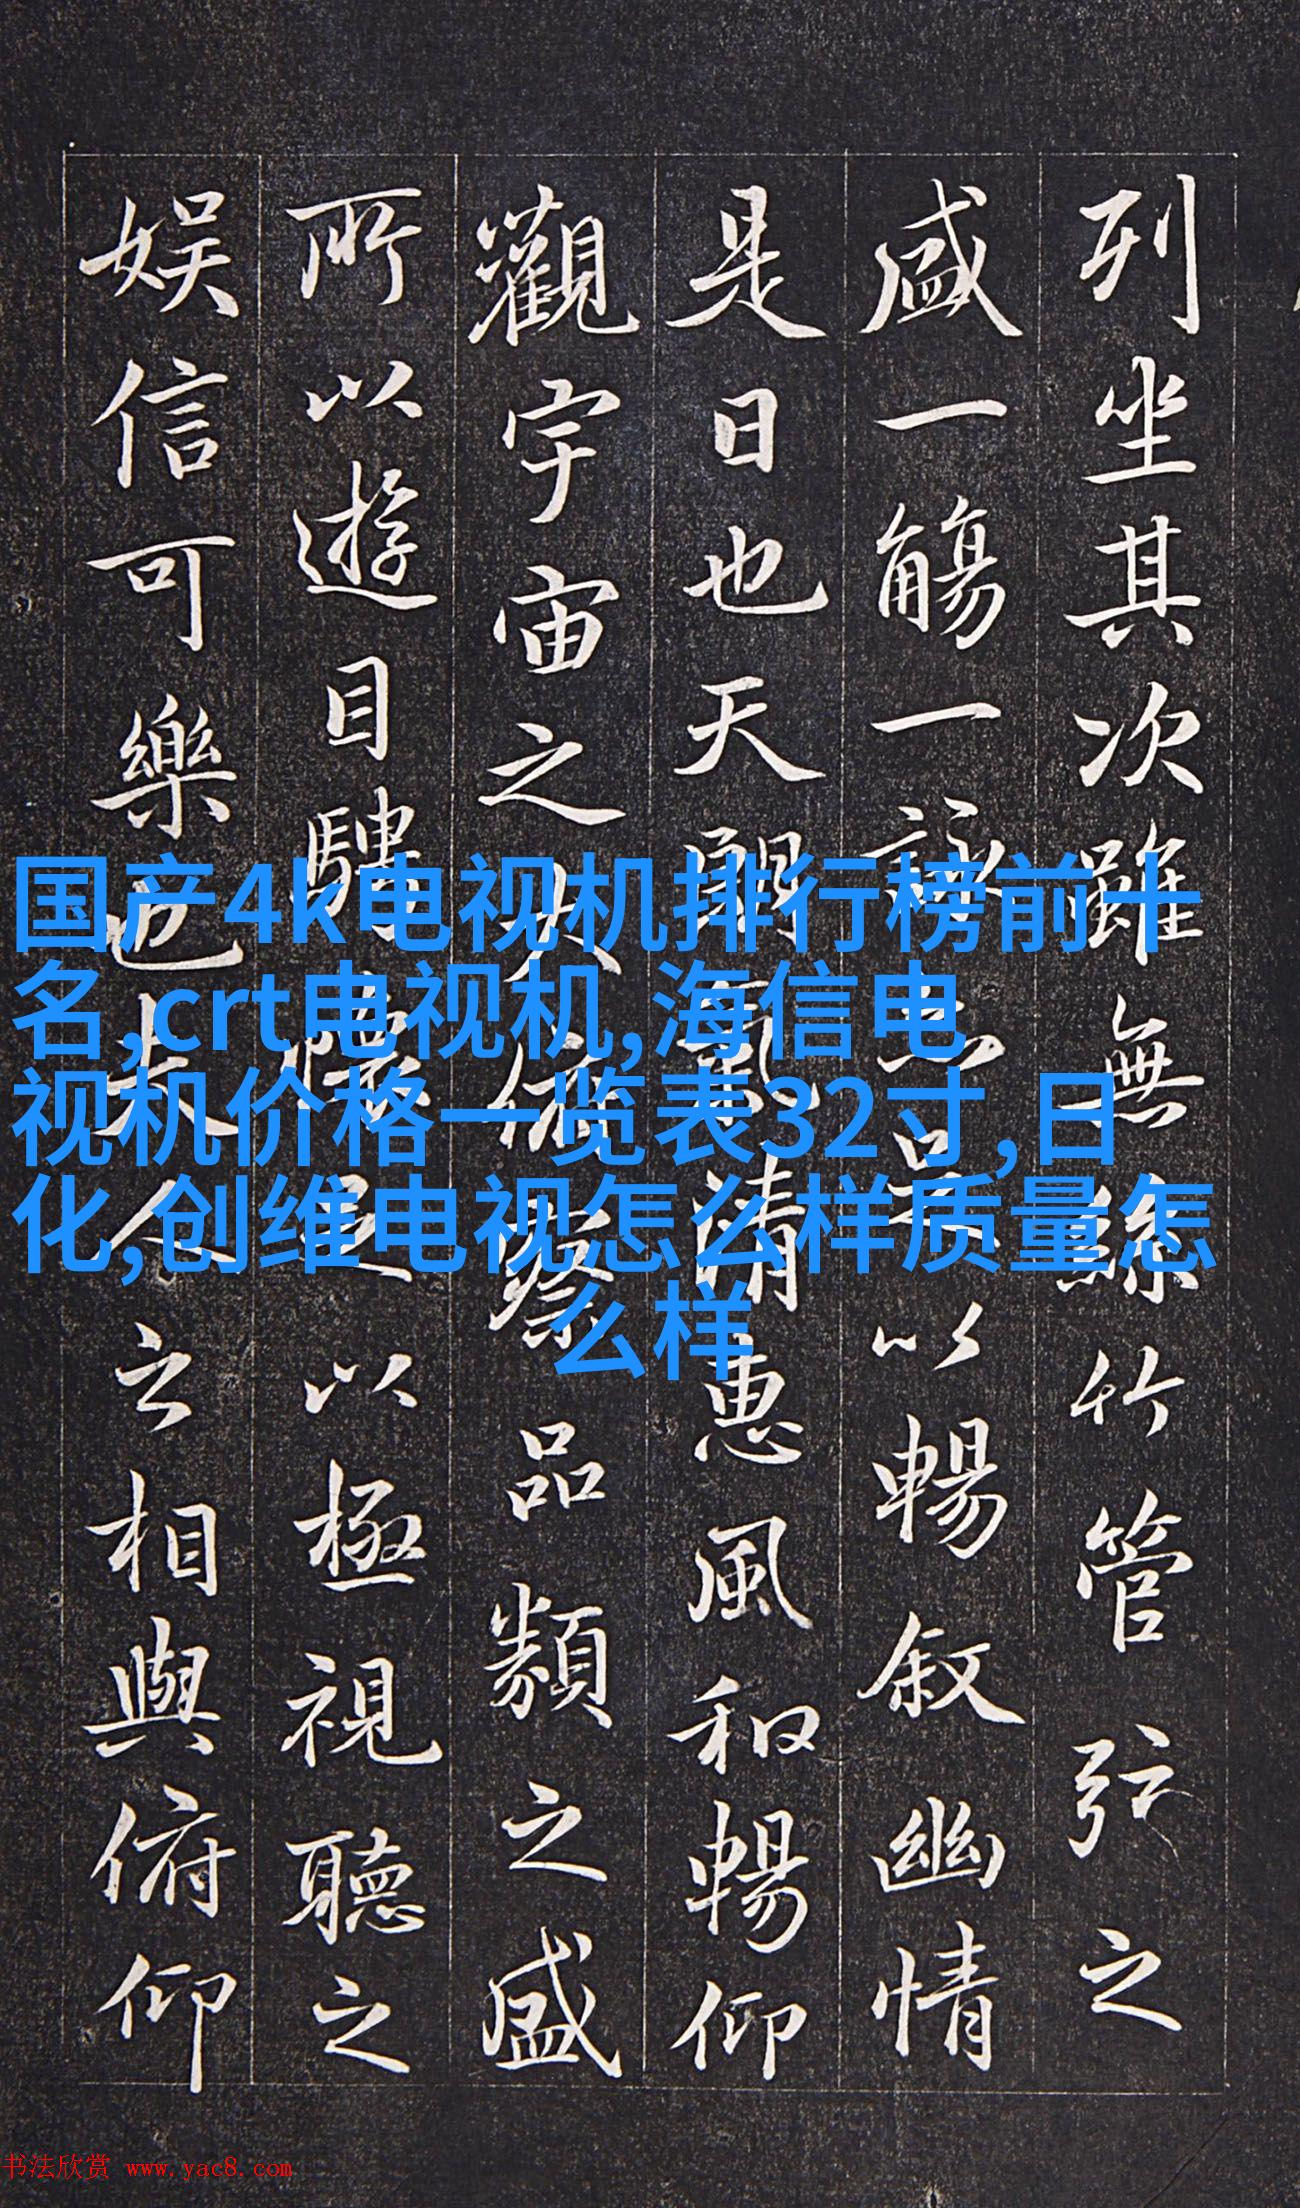 列坐其次雖無絲竹管弦之
盛一觴一詠亦足以暢叙幽情
是日也天朗氣清惠風和暢仰
觀宇宙之大俯察品類之盛
所以遊目騁懷足以極視聽之
娱信可樂也夫人之相與俯仰
国产4k电视机排行榜前十
名,crt电视机,海信电
视机价格一览表32寸,日
化,创维电视怎么样质量怎
么样
书法欣赏 www.yac8.com